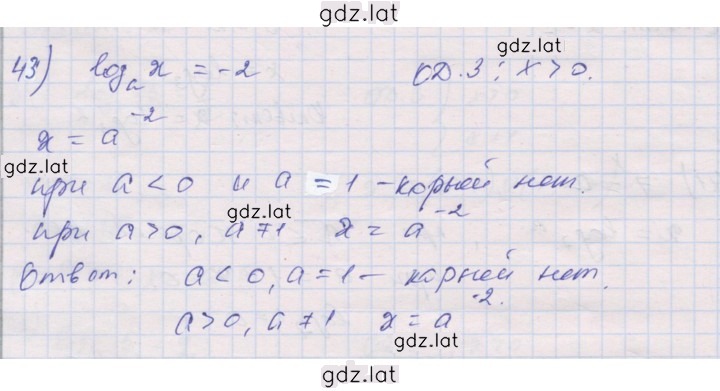 gdz.lat
43) logₐ x = -2 О.D.З: x > 0.
gdz.lat
x = a⁻²
gdz.lat
при a < 0 и a = 1 – корней нет.
gdz.lat
при a > 0, a ≠ 1 x = a⁻²
Ответ: a < 0, a = 1 – корней нет.
a > 0, a ≠ 1 x = a⁻².
gdz.lat
gdz.lat